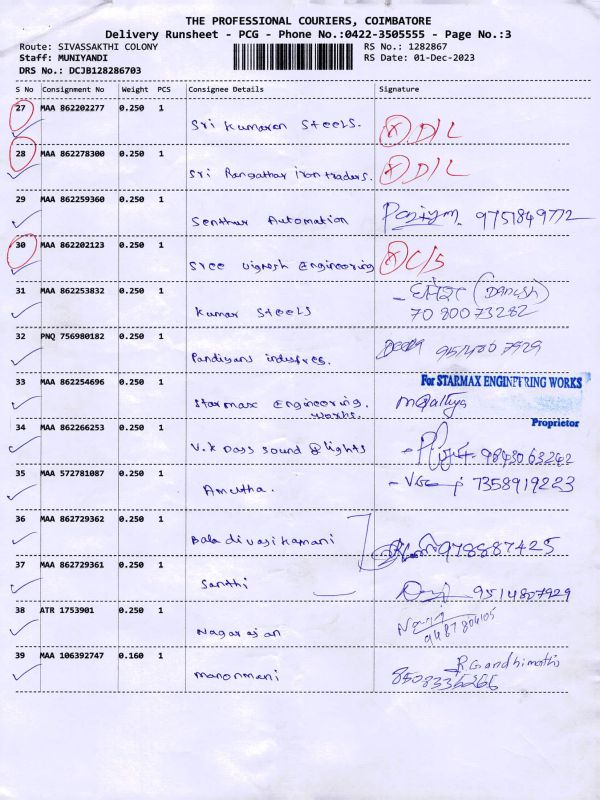 THE PROFESSIONAL COURIERS, COIMBATORE
Delivery Runsheet - PCG - Phone No.:0422-3505555 - Page No.:3
Route: SIVASSAKTHI COLONY
RS No.: 1282867
Staff: MUNIYANDI
RS Date: 01-Dec-2023
DRS No.: DCJB128286703
S No Consignment No Weight PCS Consignee Details Signature
27 MAA 862202277 0.250 1
Sri Kumaran Steels. X D/L
28 MAA 862278300 0.250 1
Sri Rangathar iron traders. X D/L
29 MAA 862259360 0.250 1
Senthur Automation 9751849772
30 MAA 862202123 0.250 1
Sree Vignesh Engineering X C/S
31 MAA 862253832 0.250 1
Kumar Steels (DANISH)
7080073282
32 PNQ 756980182 0.250 1
Pandiyans 9514807929
33 MAA 862254696 0.250 1
For STARMAX ENGINEERING WORKS
Starmax Engineering.
works.
Proprietor
34 MAA 862266253 0.250 1
V.K Dass Sound & lights 9843063242
35 MAA 572781087 0.250 1
Amutha. 7358919223
36 MAA 862729362 0.250 1
Bala divasikamani 978887425
37 MAA 862729361 0.250 1
Santhi 9514807929
38 ATR 1753901 0.250 1
Nagarajan 9487804105
39 MAA 106392747 0.160 1
R. Gandhimathi
Manonmani 8508336266